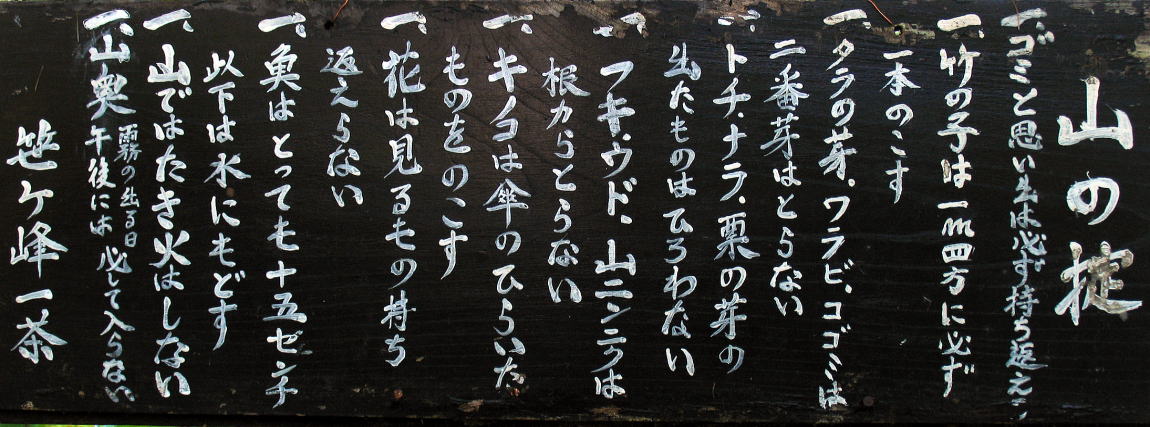 山の掟
一、ゴミと思い出は必ず持ち返え
一、竹の子は一m四方に必ず
一本のこす
一、タラの芽、ワラビ、コゴミは
二番芽はとらない
一、トチ、ナラ、栗の芽の
出たものはひろわない
一、フキ、ウド、山ニンニクは
根カらとらない
一、キノコは傘のひらいた
ものをのこす
一、花は見るもの持ち
返えらない
一、魚はとっても十五センチ
以下は水にもどす
一、山ではたき火はしない
一、山奥霧の出る日
午後には必して入らない
笹ケ峰一茶